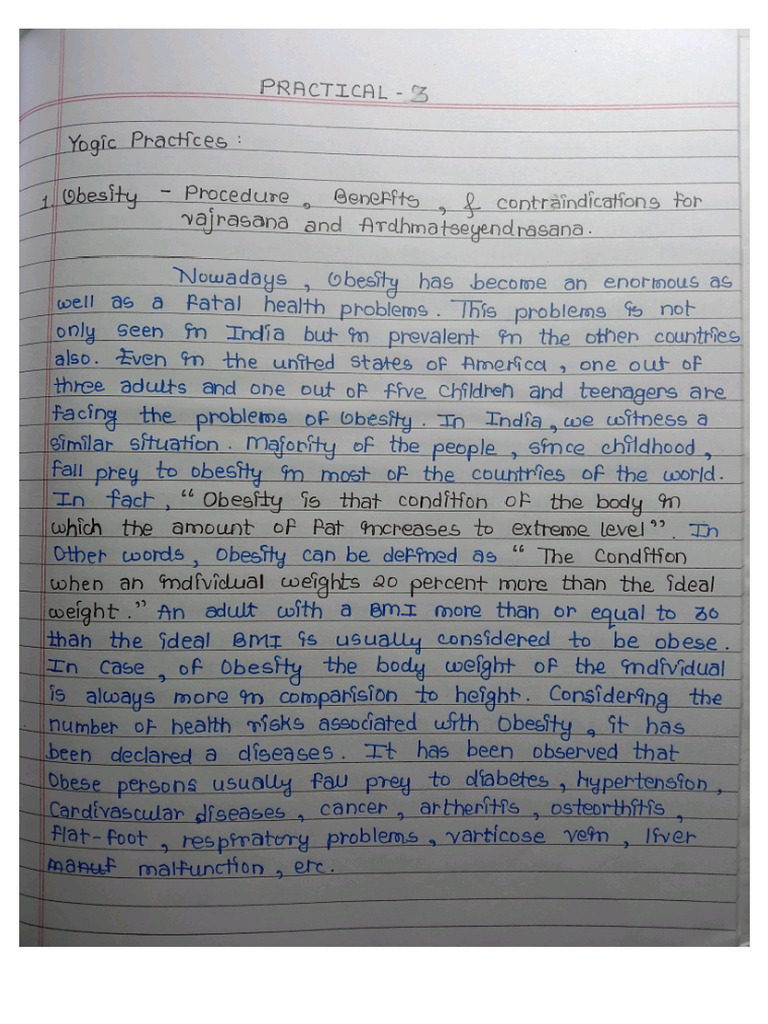 PRACTICAL - 3
Yogic Practices :
1. Obesity - Procedure, Benefits, & contraindications for
Vajrasana and Ardhmatseyendrasana.
Nowadays, Obesity has become an enormous as
well as a fatal health problems. This problems is not
only seen in India but in prevalent in the other countries
also. Even in the united states of America, one out of
three adults and one out of five children and teenagers are
facing the problems of Obesity. In India, we witness a
similar situation. Majority of the people, since childhood,
fall prey to obesity in most of the countries of the world.
In fact, "Obesity is that condition of the body in
which the amount of fat increases to extreme level". In
Other words, Obesity can be defined as "The Condition
when an individual weights 20 percent more than the ideal
weight." An adult with a BMI more than or equal to 30
than the ideal BMI is usually considered to be obese.
In case, of Obesity the body weight of the individual
is always more in comparision to height. Considering the
number of health risks associated with Obesity, it has
been declared a diseases. It has been observed that
Obese persons usually fall prey to diabetes, hypertension,
Cardivascular diseases, cancer, artheritis, osteorthitis,
flat-foot, respiratory problems, varticose vein, liver
malfunction, etc.